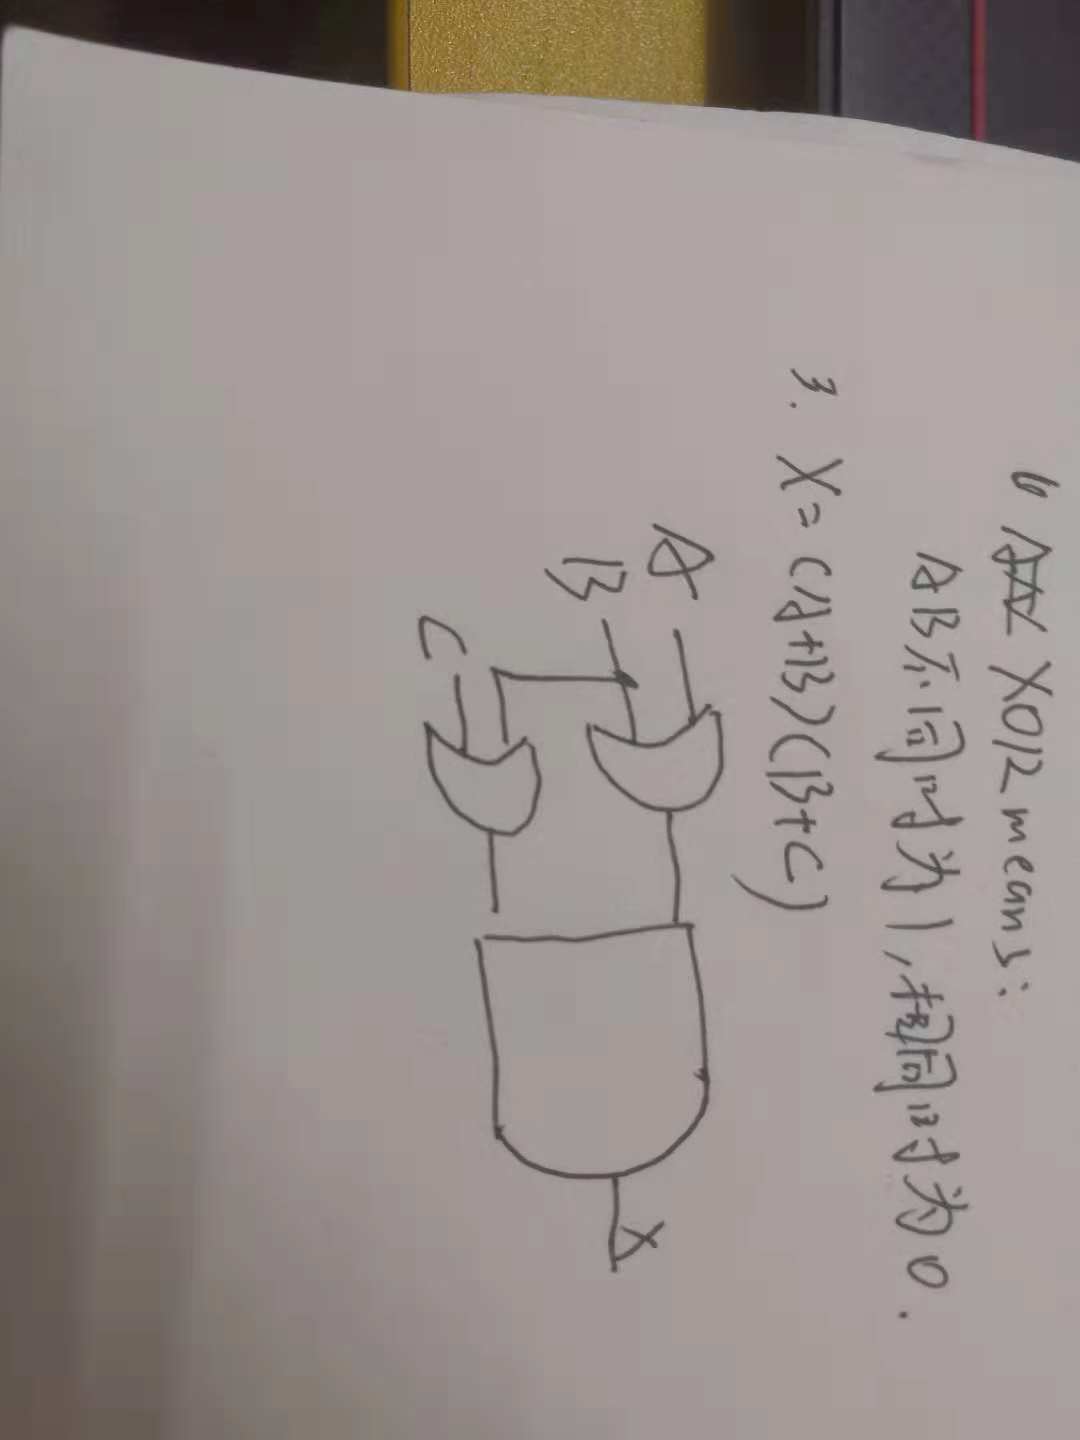 6 XOR means:
AB不同时为1,相同时为0.
3. X=(A+B)(B+C)
A
B
C
X